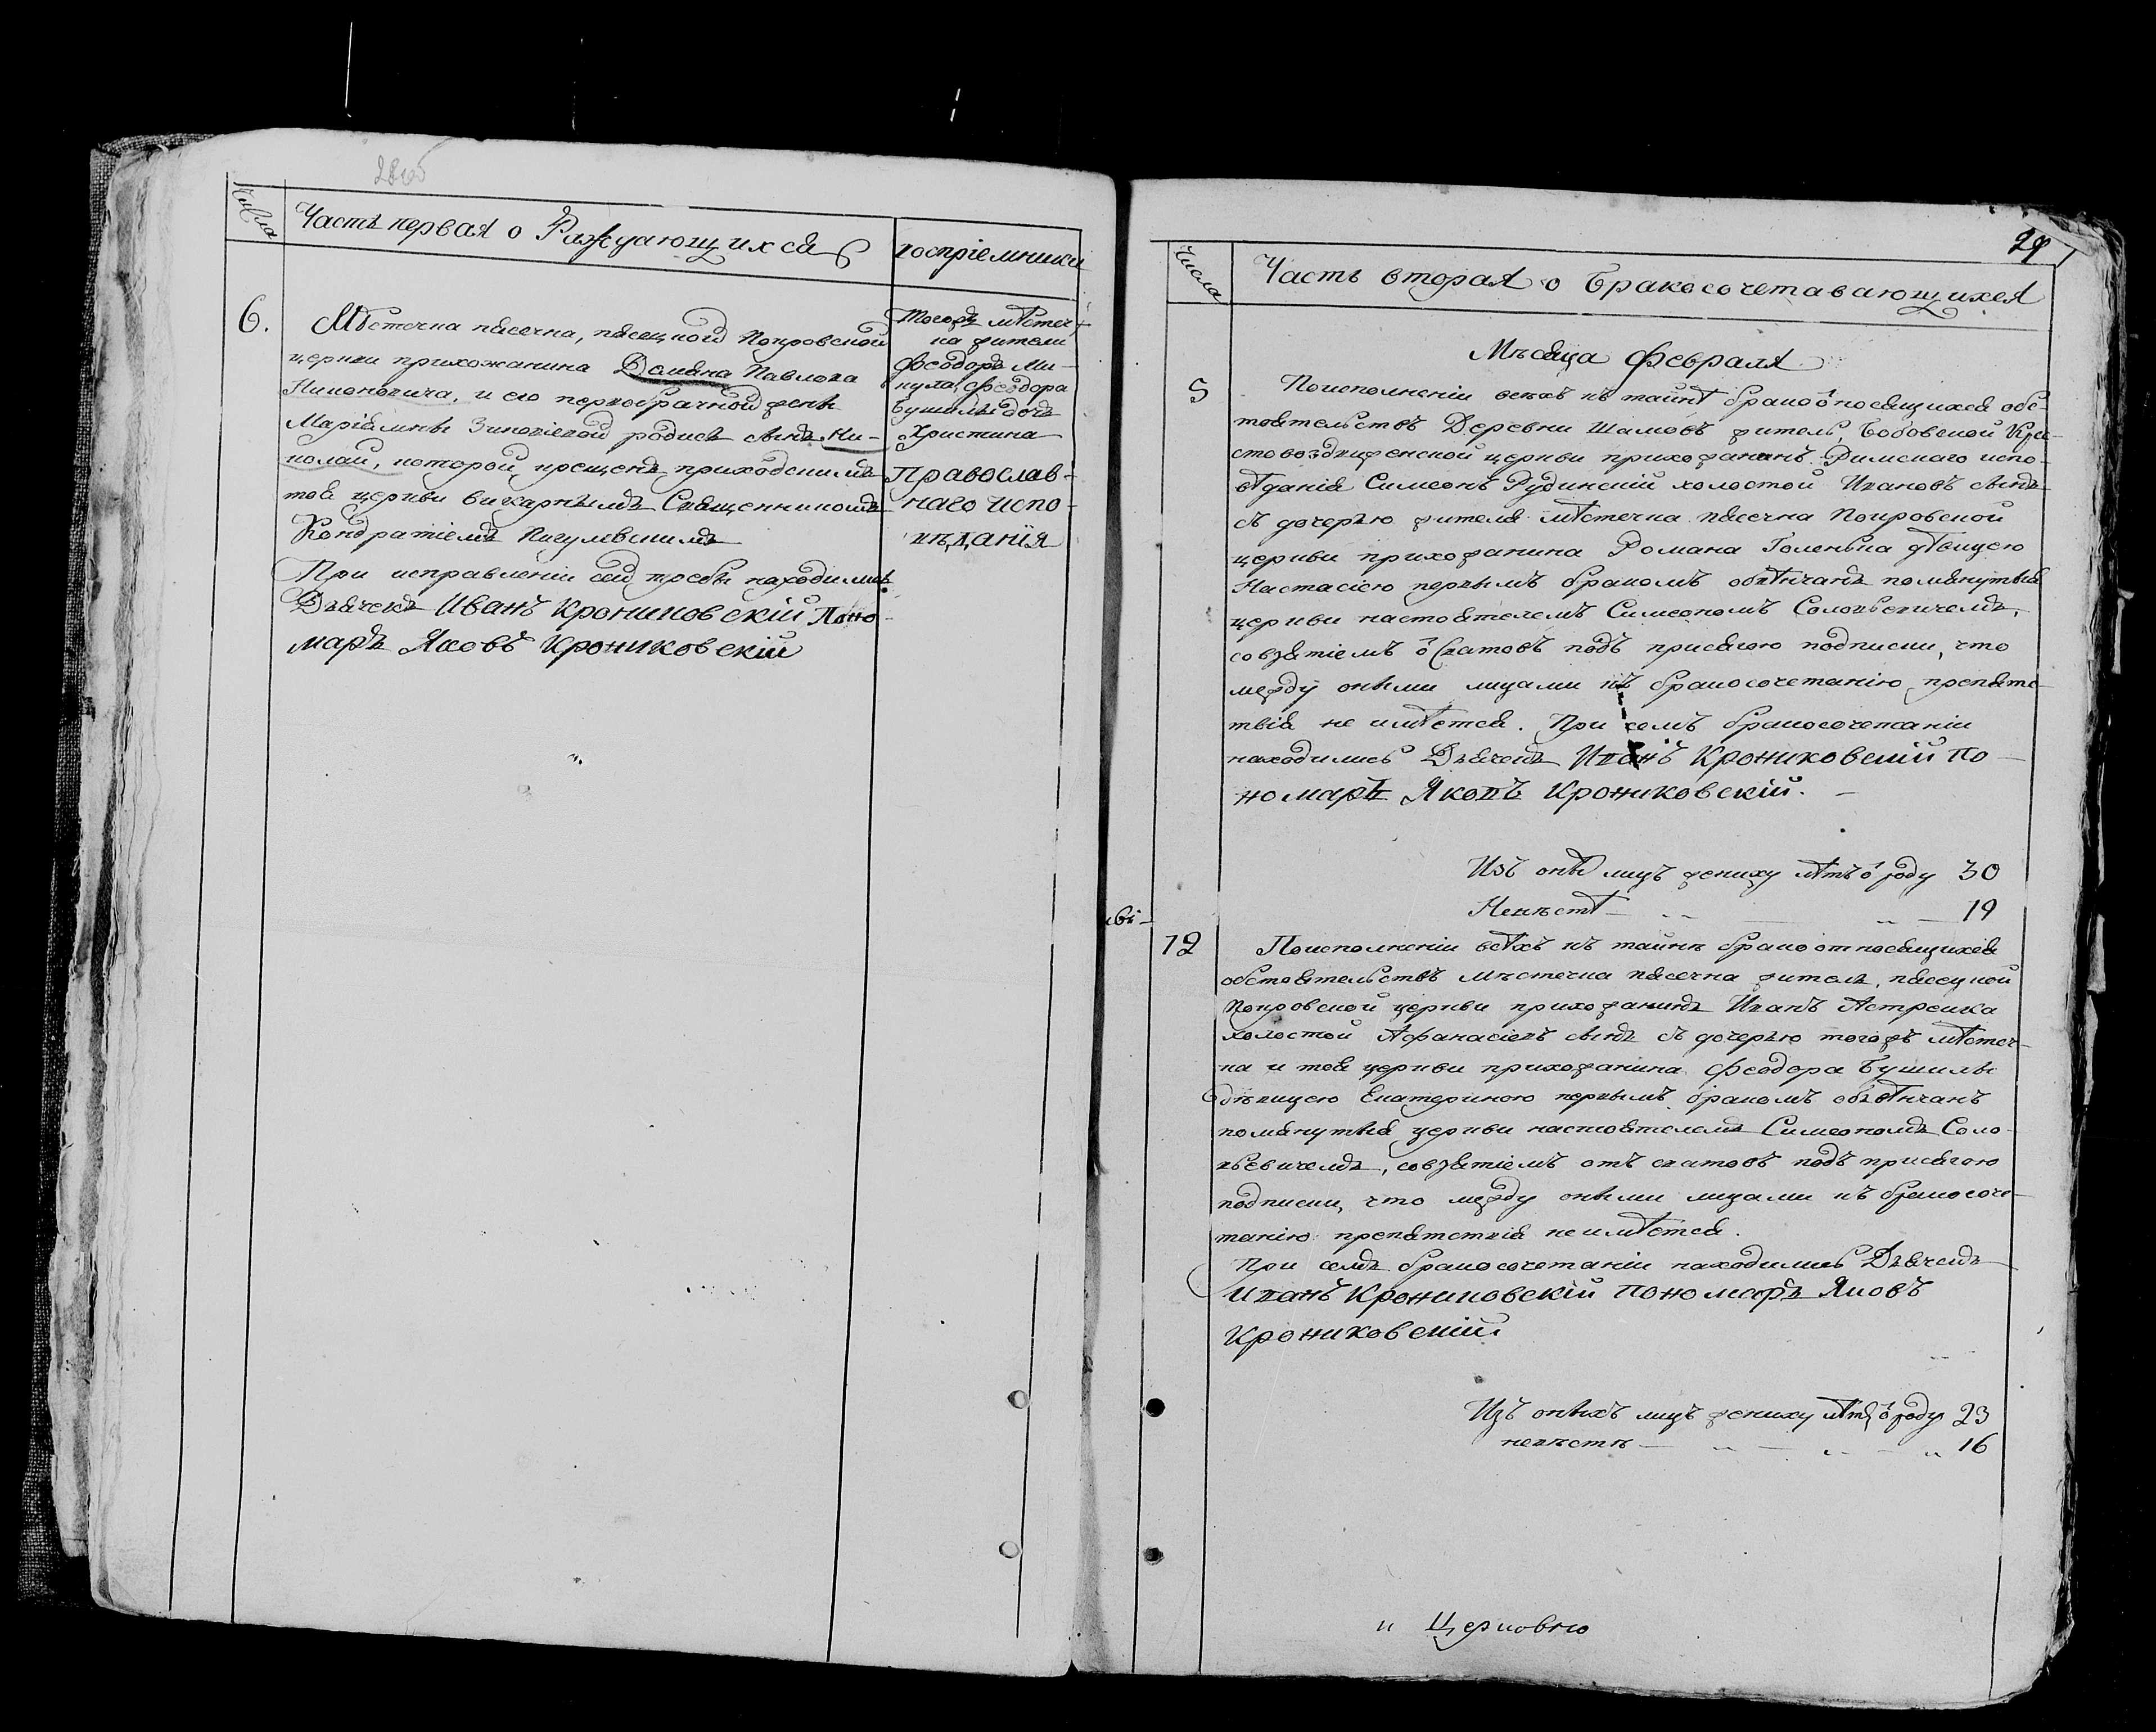 Числа
Часть первая о Раждающихся
воспріемники
6.
Мѣстечка пясечна, пясецкой Покровской
церкви прихожанина Демяна Павлова
и его первобрачной жены
Маріямны Зиновіевой родися сынъ Ни-
колай, которой крещенъ приходскимъ
тоя церкви викарнымъ Священникомъ
Кондратіемъ
При исправленіи сей требы находились
Дьячекъ Иванъ Крониковскій Поно-
марь Яковъ Крониковскій
Тогожъ мѣстеч-
ка жители
Феодоръ Ми-
куха, Феодора
Бушилы дочь
Христина
Православ-
наго испо-
вѣданія
29
Числа
Часть вторая о Бракосочетавающихся
Мѣсяца Февраля
5
Поисполненіи всѣхъ къ тайнѣ брака относящихся обс-
тоятельствъ Деревни Шамовъ житель, Бобовской Кре-
стовоздвиженской церкви прихожанинъ Римскаго испо-
вѣданія Симеонъ Рудинскій холостой Ивановъ сынъ
съ дочерью жителя мѣстечка пясечна Покровской
церкви прихожанина Романа Голенька дѣвицею
Настасіею первымъ бракомъ обвѣнчанъ помянутыя
церкви настоятелемъ Симеономъ Соловьевичемъ,
совзятіемъ от Сватовъ подъ присягою подписки, что
между оными лицами къ бракосочетанію препятс-
твія не имѣется. При семъ бракосочетаніи
находились Дьячекъ Иванъ Крониковскій По-
номарь Яковъ Крониковскій.
Изъ оныхъ лицъ жениху лѣтъ от роду 30
Невѣстѣ — „ — „ — 19
12
Поисполненіи всѣхъ къ тайнѣ брака относящихся
обстоятельствъ мѣстечка пясечна житель, пясецкой
Покровской церкви прихожанинъ Иванъ Астрейка
холостой Афанасіевъ сынъ съ дочерью тогожъ мѣстеч-
ка и тоя церкви прихожанина Феодора Бушилы
дѣвицею Екатериною первымъ бракомъ обвѣнчанъ
помянутыя церкви настоятелемъ Симеономъ Соло-
вьевичемъ, совзятіемъ отъ сватовъ подъ присягою
подписки, что между оными лицами къ бракосоче-
танію препятствія неимѣется.
При семъ бракосочетаніи находились Дьячекъ
Иванъ Крониковскій Пономарь Яковъ
Крониковскій
Изъ оныхъ лицъ жениху лѣтъ от роду 23
невѣстѣ — „ — „ — „ 16
„ Церковію